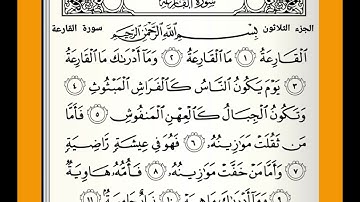 سورة القارعة
الجزء الثلاثون
سورة القارعة
بِسْمِ ٱللَّهِ ٱلرَّحْمَٰنِ ٱلرَّحِيمِ
ٱلْقَارِعَةُ ١ مَا ٱلْقَارِعَةُ ٢ وَمَآ أَدْرَىٰكَ مَا ٱلْقَارِعَةُ
٣ يَوْمَ يَكُونُ ٱلنَّاسُ كَٱلْفَرَاشِ ٱلْمَبْثُوثِ ٤
وَتَكُونُ ٱلْجِبَالُ كَٱلْعِهْنِ ٱلْمَنفُوشِ ٥ فَأَمَّا
مَن ثَقُلَتْ مَوَٰزِينُهُۥ ٦ فَهُوَ فِى عِيشَةٍ رَّاضِيَةٍ
٧ وَأَمَّا مَنْ خَفَّتْ مَوَٰزِينُهُۥ ٨ فَأُمُّهُۥ هَاوِيَةٌ
٩ وَمَآ أَدْرَىٰكَ مَا هِيَهْ ١٠ نَارٌ حَامِيَةٌۢ ١١